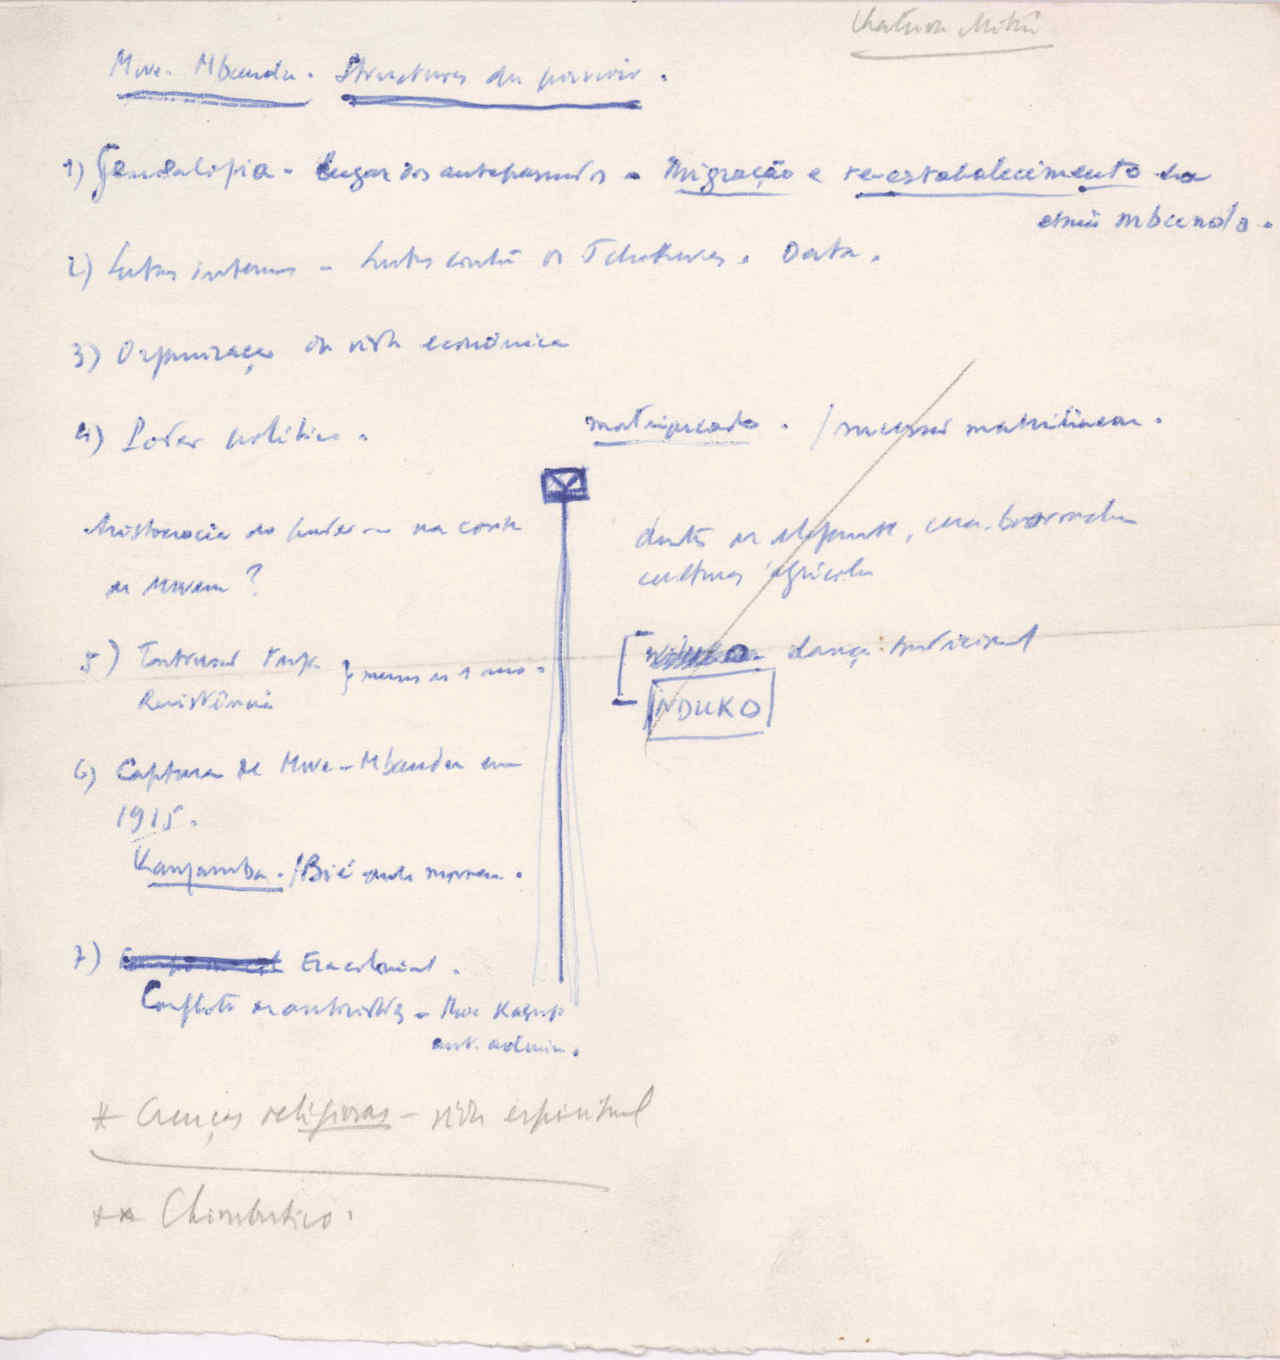 Mwe-Mbandu. Structures du pouvoir.
1) Genealogia - Lugar dos antepassados - Migração e re-estabelecimento da
etnia mbunda.
2) Lutas internas - Lutas contra os Tchokwes. Data.
3) Organização da vida económica
4) Poder político.
matriarcado. / sucessão matrilinear.
Aristocracia no poder - na corte
do Mwene?
dentes de elefante, cera, borracha
culturas agrícolas
5) Port.
Resistência } menos de 1 ano.
dança tradicional
NDUKO
6) Captura de Mwe-Mbandu em
1915.
Kangamba. / Bié onde morreu.
7) Era colonial.
Conflito de autoridades - Mwe
aut. admin.
* Crenças religiosas - vida espiritual
** Chimbutico.